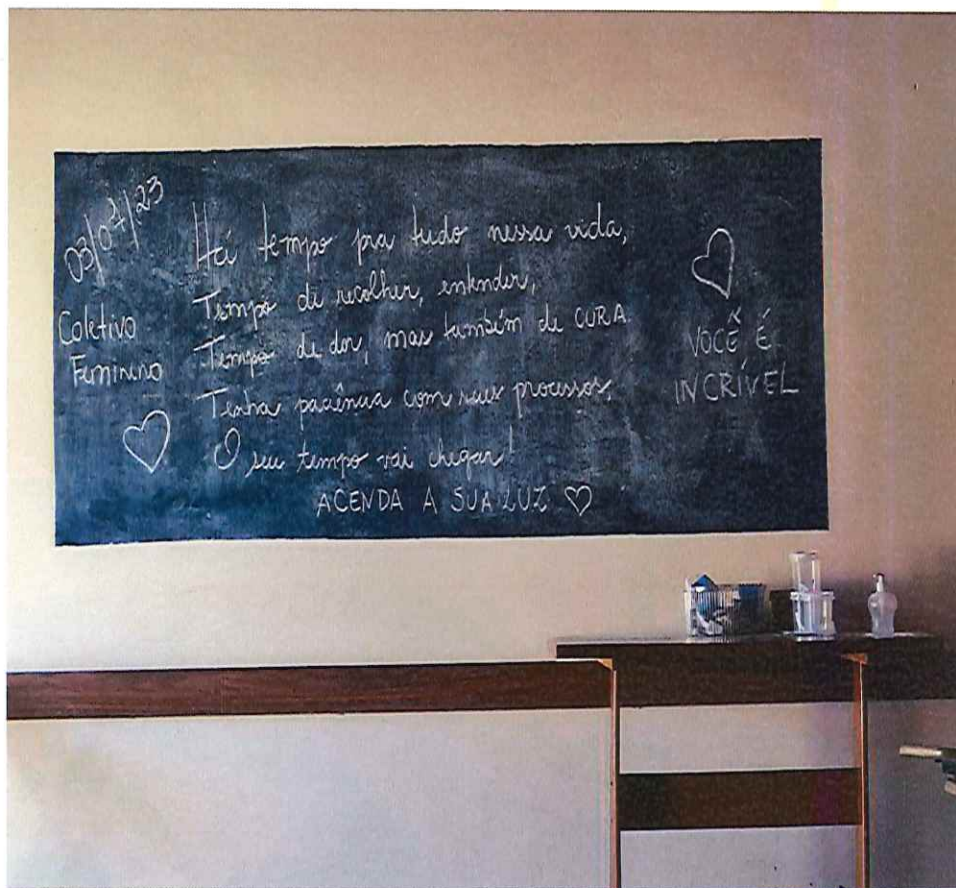 03/07/23
Coletivo
Feminino
Há tempo pra tudo nessa vida,
Tempo de recolher, entender,
Tempo de dor, mas também de CURA
Tenha paciência com seus processos,
O seu tempo vai chegar!
ACENDA A SUA LUZ ♡
VOCÊ É
INCRÍVEL